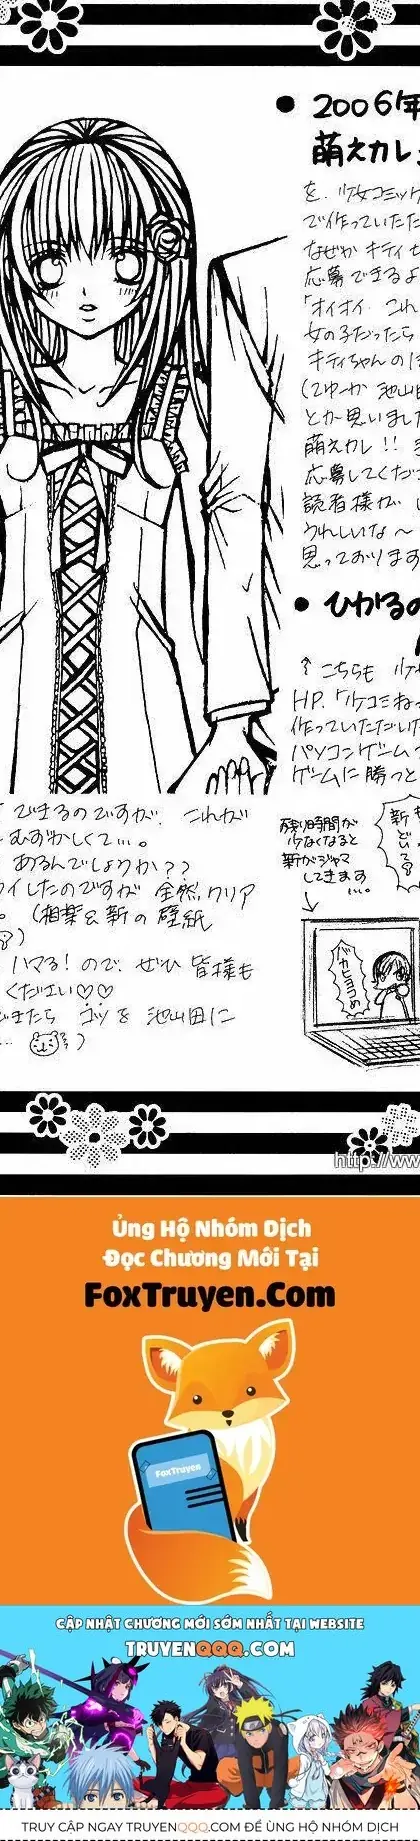 ● 2006年
萌えカレ
を、少女コミック
で作っていただ
なぜか キティち
応募できるよ
「オイオイ、これ
女の子だったら
キティちゃんのほ
(てゆーか 池山田
とか思いました
萌えカレ!!
応募してくださ
読者様が、
うれしいな〜
思っております
● ひかるの
↑こちらも 少
HP.「少コミねっ
作っていただいた
パソコンゲーム
ゲームに勝つと
できるのですが、これが
むずかしくて…。
あるんでしょうか??
したのですが 全然クリア
。(相葉&新の壁紙
ハマる!ので、ぜひ 皆様も
ください♡♡
きたら コツを 池山田に
残り時間が
少なくなると
新がジャマ
してきます
…。
http://www
Ủng Hộ Nhóm Dịch
Đọc Chương Mới Tại
FoxTruyen.Com
FoxTruyen
CẬP NHẬT CHƯƠNG MỚI SỚM NHẤT TẠI WEBSITE
TRUYENQQQ.COM
TRUY CẬP NGAY TRUYENQQQ.COM ĐỂ ỦNG HỘ NHÓM DỊCH